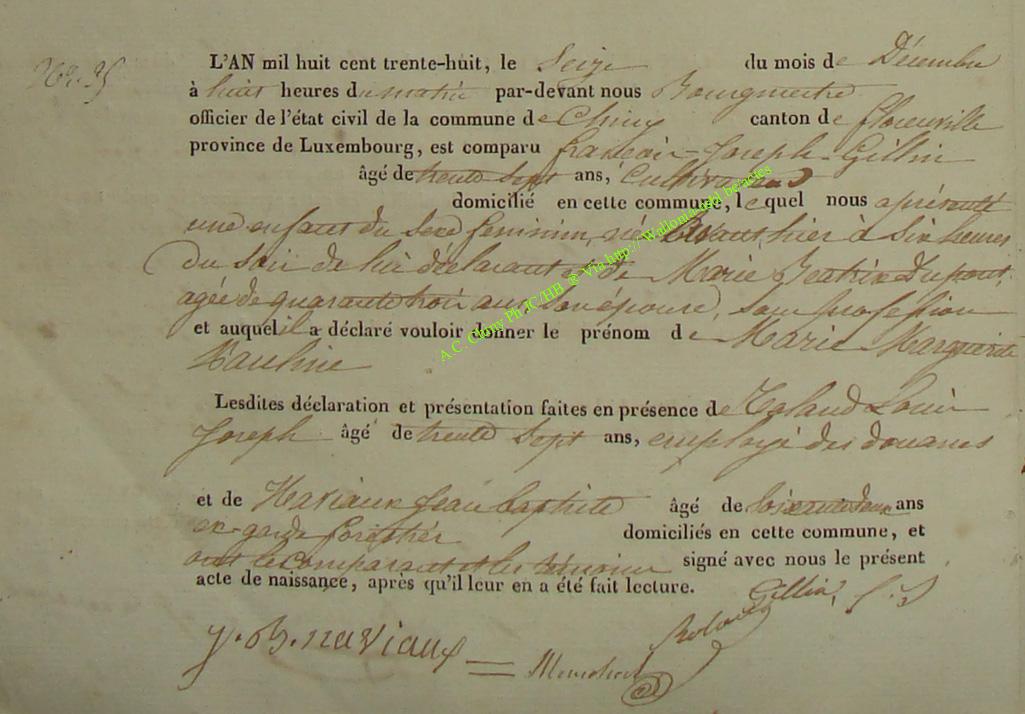 No. 35
L'AN mil huit cent trente-huit, le Seize du mois de Décembre
à huit heures du matin par-devant nous Bourgmestre
officier de l'état civil de la commune de Chiny canton de florenville
province de Luxembourg, est comparu francois-Joseph-Gillin
âgé de trente sept ans, Cultivateur
domicilié en cette commune, lequel nous a présenté
une enfant du sexe féminin, née avant hier à Six heures
du soir de lui déclarant et de Marie Beatrix Dupont,
agée de quarante trois ans son épouse, sans profession
et auquel il a déclaré vouloir donner le prénom de Marie Marguerite
Pauline
Lesdites déclaration et présentation faites en présence de Roland Louis
Joseph âgé de trente Sept ans, employé des douanes
et de Naviaux Jean baptiste âgé de Soixante deux ans
ex-garde forestier domiciliés en cette commune, et
ont le comparant et les témoins signé avec nous le présent
acte de naissance, après qu'il leur en a été fait lecture.
Gillin, f. J
J. B. naviaux Roland
A.C. Chiny Ph JC/HB @ Via http://Wallonia.eu/